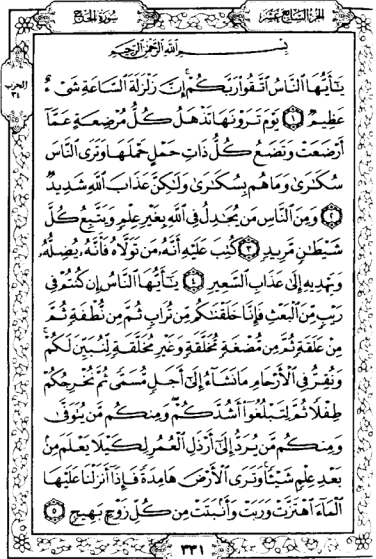 الجزء السابع عشر
سورة الحج
بِسْمِ اللَّهِ الرَّحْمَٰنِ الرَّحِيمِ
الحزب
٣٤
يَـٰٓأَيُّهَا النَّاسُ اتَّقُوا رَبَّكُمْ إِنَّ زَلْزَلَةَ السَّاعَةِ شَىْءٌ
عَظِيمٌ ۝١ يَوْمَ تَرَوْنَهَا تَذْهَلُ كُلُّ مُرْضِعَةٍ عَمَّآ
أَرْضَعَتْ وَتَضَعُ كُلُّ ذَاتِ حَمْلٍ حَمْلَهَا وَتَرَى النَّاسَ
سُكَـٰرَىٰ وَمَا هُم بِسُكَـٰرَىٰ وَلَـٰكِنَّ عَذَابَ اللَّهِ شَدِيدٌ
۝٢ وَمِنَ النَّاسِ مَن يُجَـٰدِلُ فِى اللَّهِ بِغَيْرِ عِلْمٍ وَيَتَّبِعُ كُلَّ
شَيْطَـٰنٍ مَّرِيدٍ ۝٣ كُتِبَ عَلَيْهِ أَنَّهُۥ مَن تَوَلَّاهُ فَأَنَّهُۥ يُضِلُّهُۥ
وَيَهْدِيهِ إِلَىٰ عَذَابِ السَّعِيرِ ۝٤ يَـٰٓأَيُّهَا النَّاسُ إِن كُنتُمْ فِى
رَيْبٍ مِّنَ الْبَعْثِ فَإِنَّا خَلَقْنَـٰكُم مِّن تُرَابٍ ثُمَّ مِن نُّطْفَةٍ ثُمَّ
مِنْ عَلَقَةٍ ثُمَّ مِن مُّضْغَةٍ مُّخَلَّقَةٍ وَغَيْرِ مُخَلَّقَةٍ لِّنُبَيِّنَ لَكُمْ
وَنُقِرُّ فِى الْأَرْحَامِ مَا نَشَآءُ إِلَىٰٓ أَجَلٍ مُّسَمًّى ثُمَّ نُخْرِجُكُمْ
طِفْلًا ثُمَّ لِتَبْلُغُوٓا أَشُدَّكُمْ وَمِنكُم مَّن يُتَوَفَّىٰ
وَمِنكُم مَّن يُرَدُّ إِلَىٰٓ أَرْذَلِ الْعُمُرِ لِكَيْلَا يَعْلَمَ مِنۢ
بَعْدِ عِلْمٍ شَيْـًٔا وَتَرَى الْأَرْضَ هَامِدَةً فَإِذَآ أَنزَلْنَا عَلَيْهَا
الْمَآءَ اهْتَزَّتْ وَرَبَتْ وَأَنۢبَتَتْ مِن كُلِّ زَوْجٍۭ بَهِيجٍ ۝٥
٣٣١